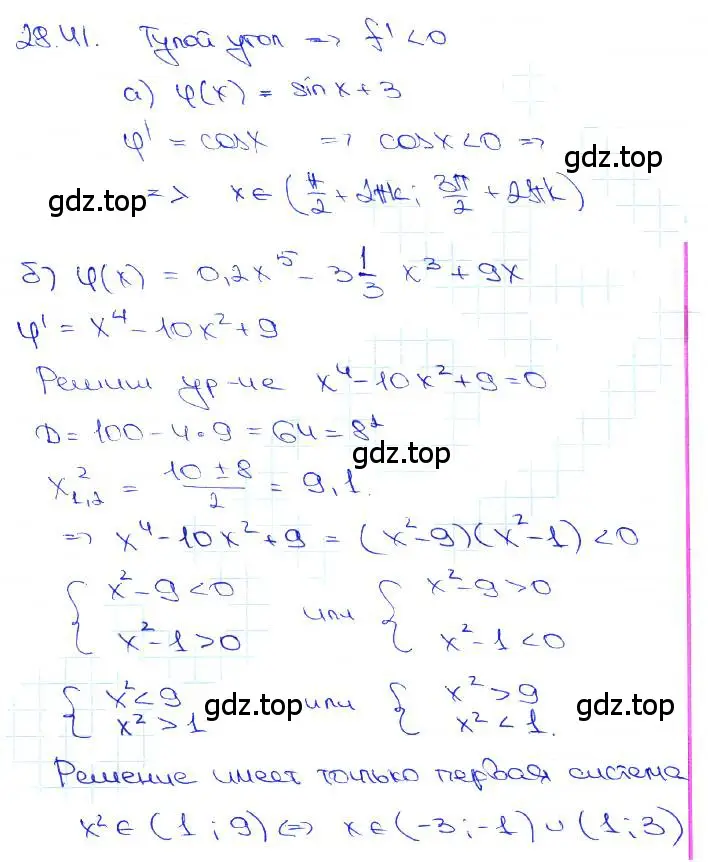 28.41. Тупой угол => f' < 0
а) φ(x) = sin x + 3
φ' = cos x => cos x < 0 =>
gdz.top
gdz.top => x ∈ (π/2 + 2πk; 3π/2 + 2πk)
б) φ(x) = 0,2x⁵ - 3 1/3 x³ + 9x
φ' = x⁴ - 10x² + 9
Решим ур-ие x⁴ - 10x² + 9 = 0
D = 100 - 4·9 = 64 = 8²
gdz.top
x²₁,₂ = (10 ± 8)/2 = 9, 1.
=> x⁴ - 10x² + 9 = (x² - 9)(x² - 1) < 0
{ x² - 9 < 0 или { x² - 9 > 0
x² - 1 > 0 x² - 1 < 0
{ x² < 9 gdz.top или { x² > 9 gdz.top
x² > 1 x² < 1.
Решение имеет только первая система
x² ∈ (1; 9) <=> x ∈ (-3; -1) ∪ (1; 3)